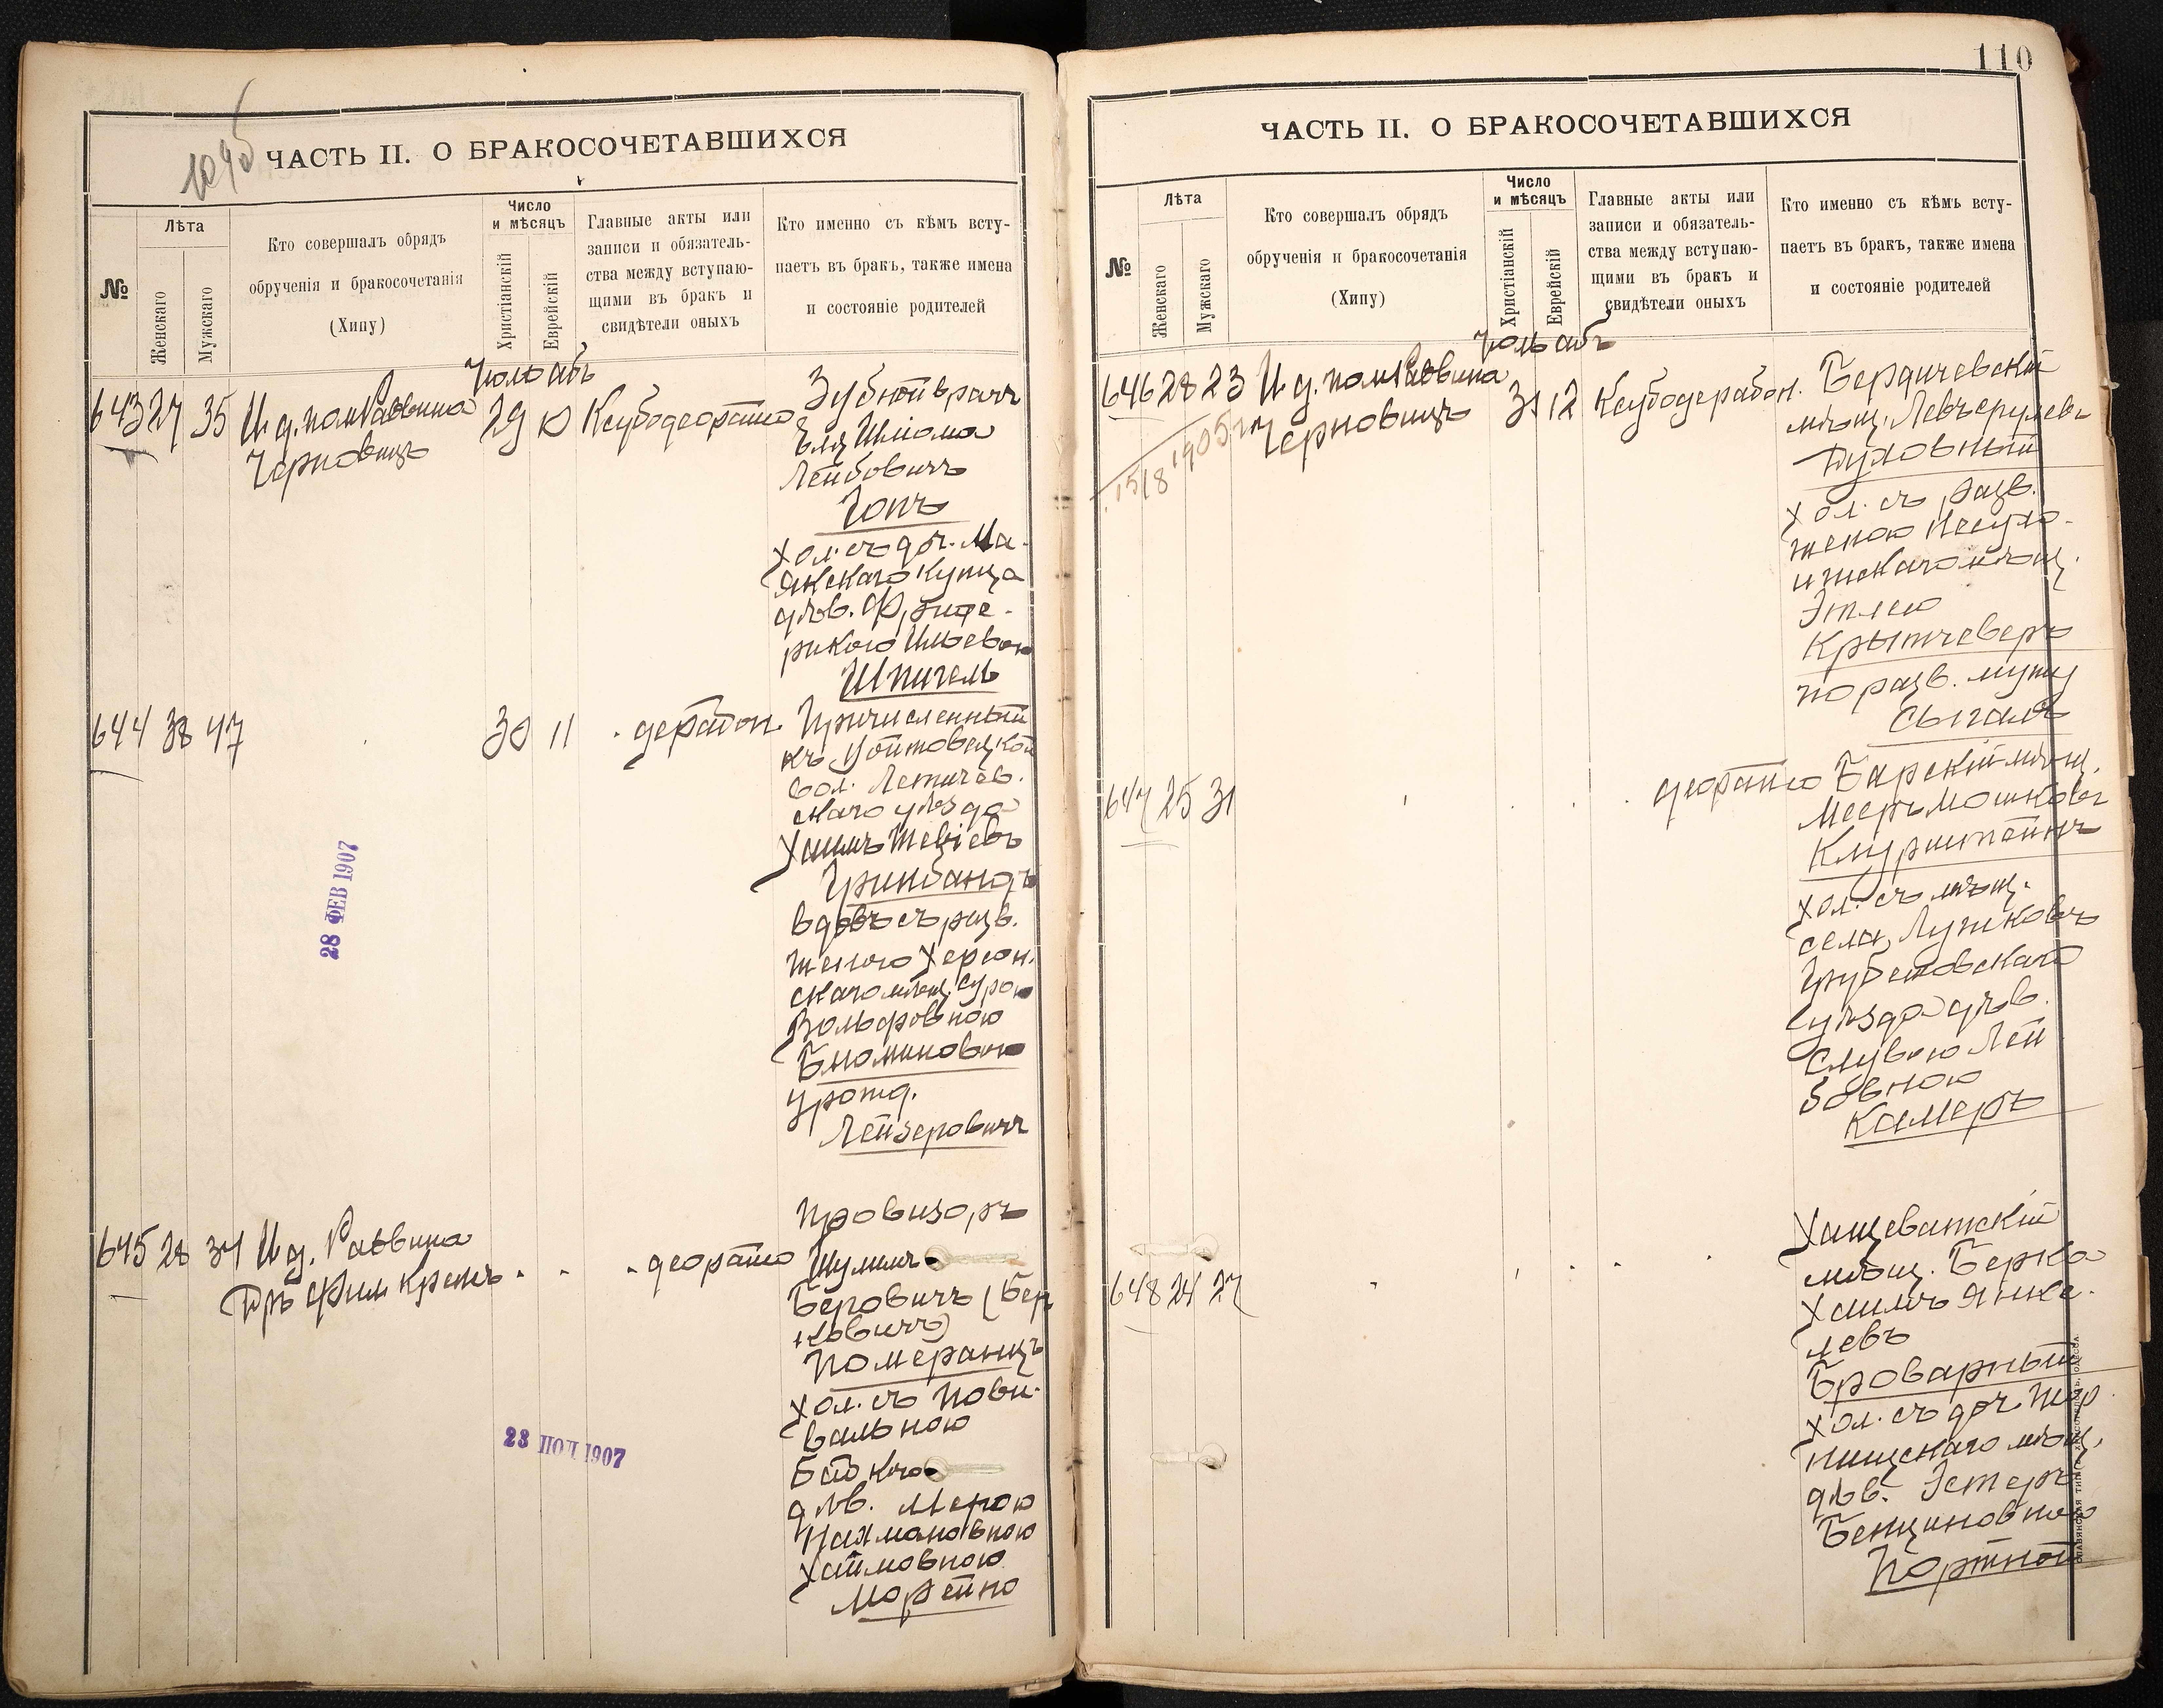 1095
ЧАСТЬ II. О БРАКОСОЧЕТАВШИХСЯ
№
Лѣта
Женскаго
Мужскаго
Кто совершалъ обрядъ
обрученія и бракосочетанія
(Хипу)
Число
и мѣсяцъ
Христіанскій
Еврейскій
Главные акты или
записи и обязатель-
ства между вступаю-
щими въ бракъ и
свидѣтели оныхъ
Кто именно съ кѣмъ всту-
паетъ въ бракъ, также имена
и состояніе родителей
Іюль абъ
643 27 35 И д. пом Раввина
Черновицъ
29 10
Зубной врачъ
Эля Шліома
Лейбовичъ
Гопъ
хол. съ доч. Ма-
якскаго купца
дѣв. Фриде-
рикою Ильевою
Шпигель
644 38 47 30 11
Причисленный
къ Войтовецкой
вол. Летичев.
скаго уѣзда
Хаимъ Тевіевъ
Гринбандъ
вдовъ съ разв.
женою Херсон.
скаго мѣщ. Сурою
Вольфовною
Блюминовою
урожд.
Лейзеровичъ
28 ФЕВ 1907
645 28 34 И д. Раввина
Дръ Фил Крепсъ
Провизоръ
Шулимъ
Беровичъ (Бер
ковичъ)
Померанцъ
хол. съ Пови-
вальною
Бабкою
дѣв. Мерою
Нахмановною
Хаймовною
Морейно
23 1907
110
ЧАСТЬ II. О БРАКОСОЧЕТАВШИХСЯ
№
Лѣта
Женскаго
Мужскаго
Кто совершалъ обрядъ
обрученія и бракосочетанія
(Хипу)
Число
и мѣсяцъ
Христіанскій
Еврейскій
Главные акты или
записи и обязатель-
ства между вступаю-
щими въ бракъ и
свидѣтели оныхъ
Кто именно съ кѣмъ всту-
паетъ въ бракъ, также имена
и состояніе родителей
Іюль абъ
646 28 23 И д. пом Раввина
Черновицъ
31 12
15/8 1905
Бердичевскій
мѣщ. Левъ Срулевъ
Духовный
хол. съ разв.
женою
мѣщ.
Этлею
Крытчеверъ
по разв. мужу
Сыгалъ
647 25 31
Барскій мѣщ.
Мееръ Мошковъ
Клурштейнъ
хол. съ мѣщ.
села Лужковъ
Грубешовскаго
уѣзда дѣв.
Слувою Лей
бовною
Камеръ
648 24 27
Хащеватскій
мѣщ. Берко
Хаимъ Янке-
левъ
Броварный
хол. съ доч
мѣщ.
дѣв. Эстеръ
Бенционовною
Портной